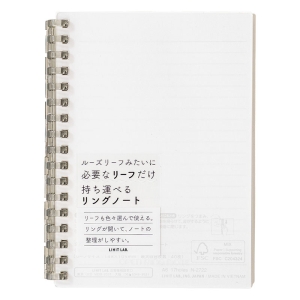 ルーズリーフみたいに
必要なリーフだけ
持ち運べる
リングノート
リーフも色々選んで使える。
リングが開いて、ノートの
整理がしやすい。
LIHIT LAB.